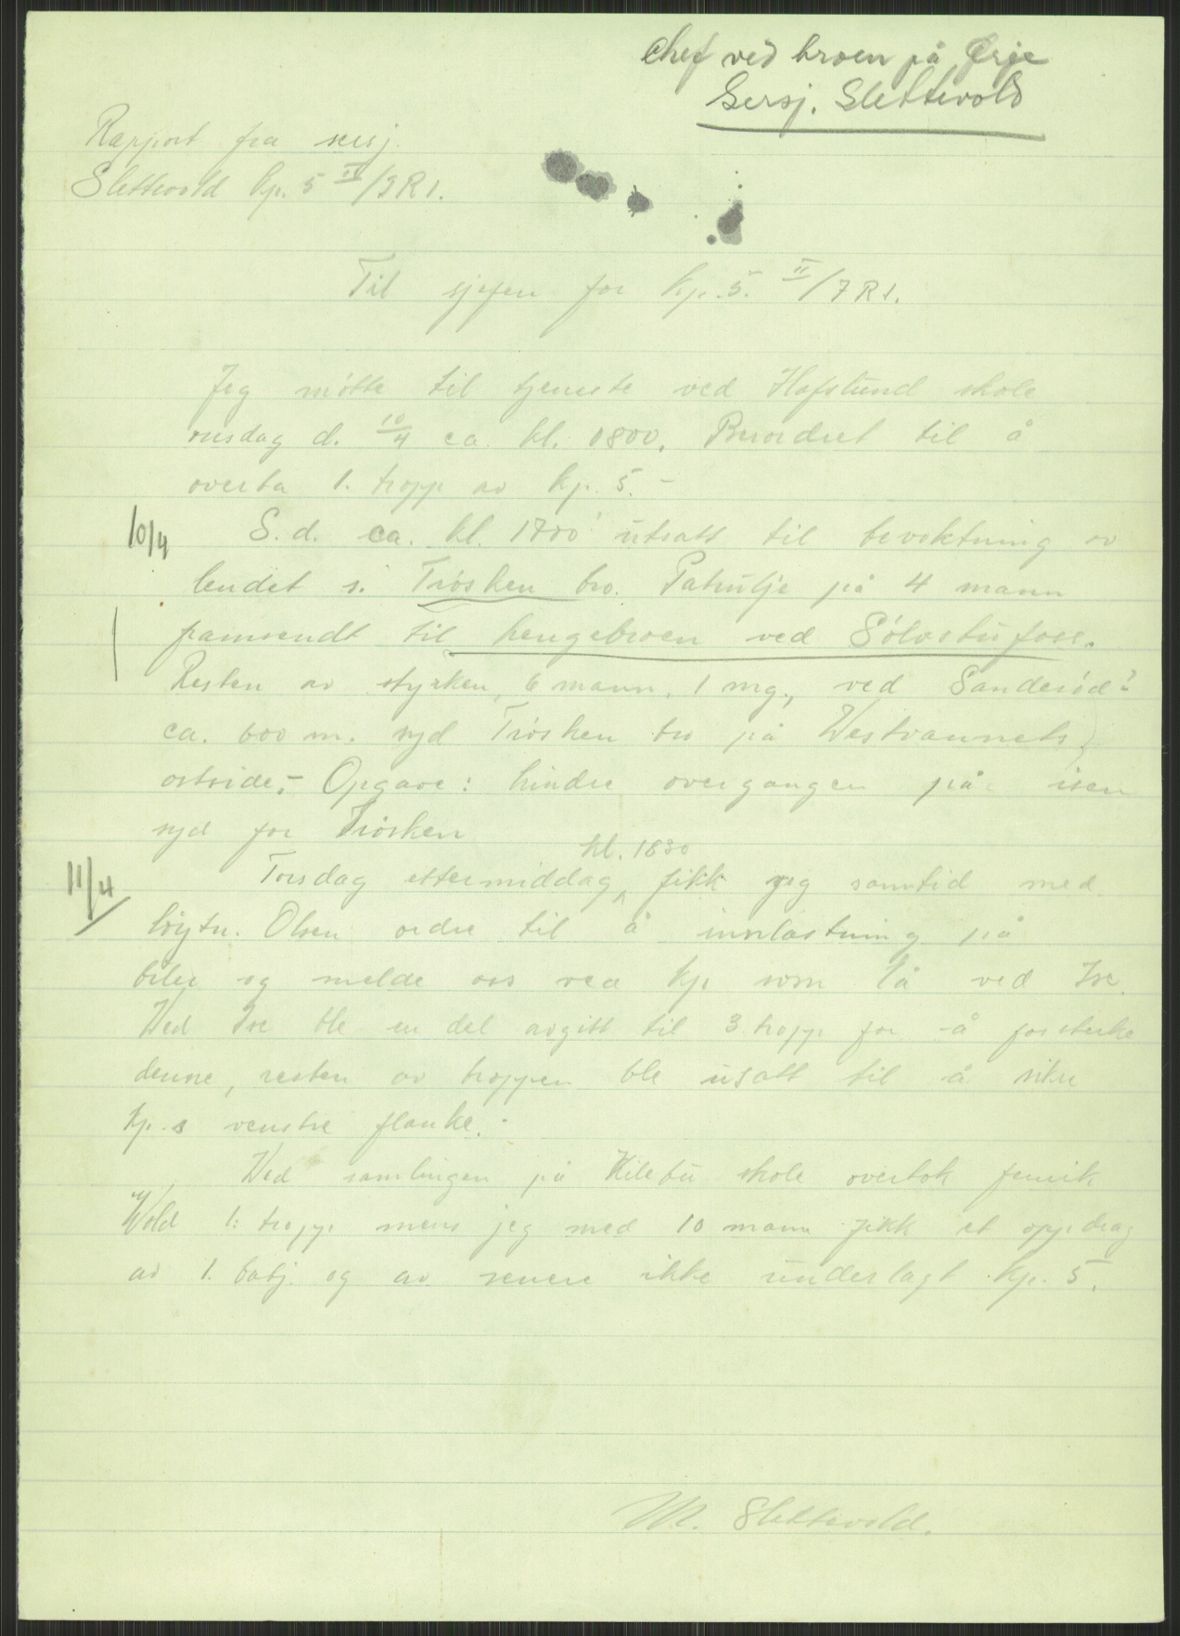 Chef ved broen på Ørje
Sersj. Slettevold
Rapport fra sersj.
Slettevold kp. 5 II/IR 1.
Til sjefen for kp. 5. II/IR 1.
Jeg møtte til tjeneste ved Hafslund skole
onsdag d. 10/4 ca. kl. 0800. Beordret til å
overta 1. tropp av kp. 5. –
10/4 S.d. ca. kl. 1700 utsatt til bevoktning av
lendet s. Trøsken bro. Patrulje på 4 mann
framsendt til hengebroen ved Sølvstufoss.
Resten av styrken, 6 mann, 1 mg., ved Sanderød?
ca. 600 m. syd Trøsken bro på Vestvannets
østside. – Opgave: hindre overgangen på isen
syd for Trøsken
kl. 1830
11/4 Torsdag ettermiddag fikk jeg samtid med
løytn. Olsen ordre til å innlastning på
biler og melde oss ved kp som lå ved Ise.
Ved Ise ble en del avgitt til 3. tropp for å forsterke
denne, resten av troppen ble usatt til å sikre
kp.s venstre flanke. –
Ved samlingen på Kilebu skole overtok fenrik
Wold 1. tropp mens jeg med 10 mann fikk et oppdrag
av 1. batj. og av senere ikke underlagt kp. 5.
M. Slettevold.